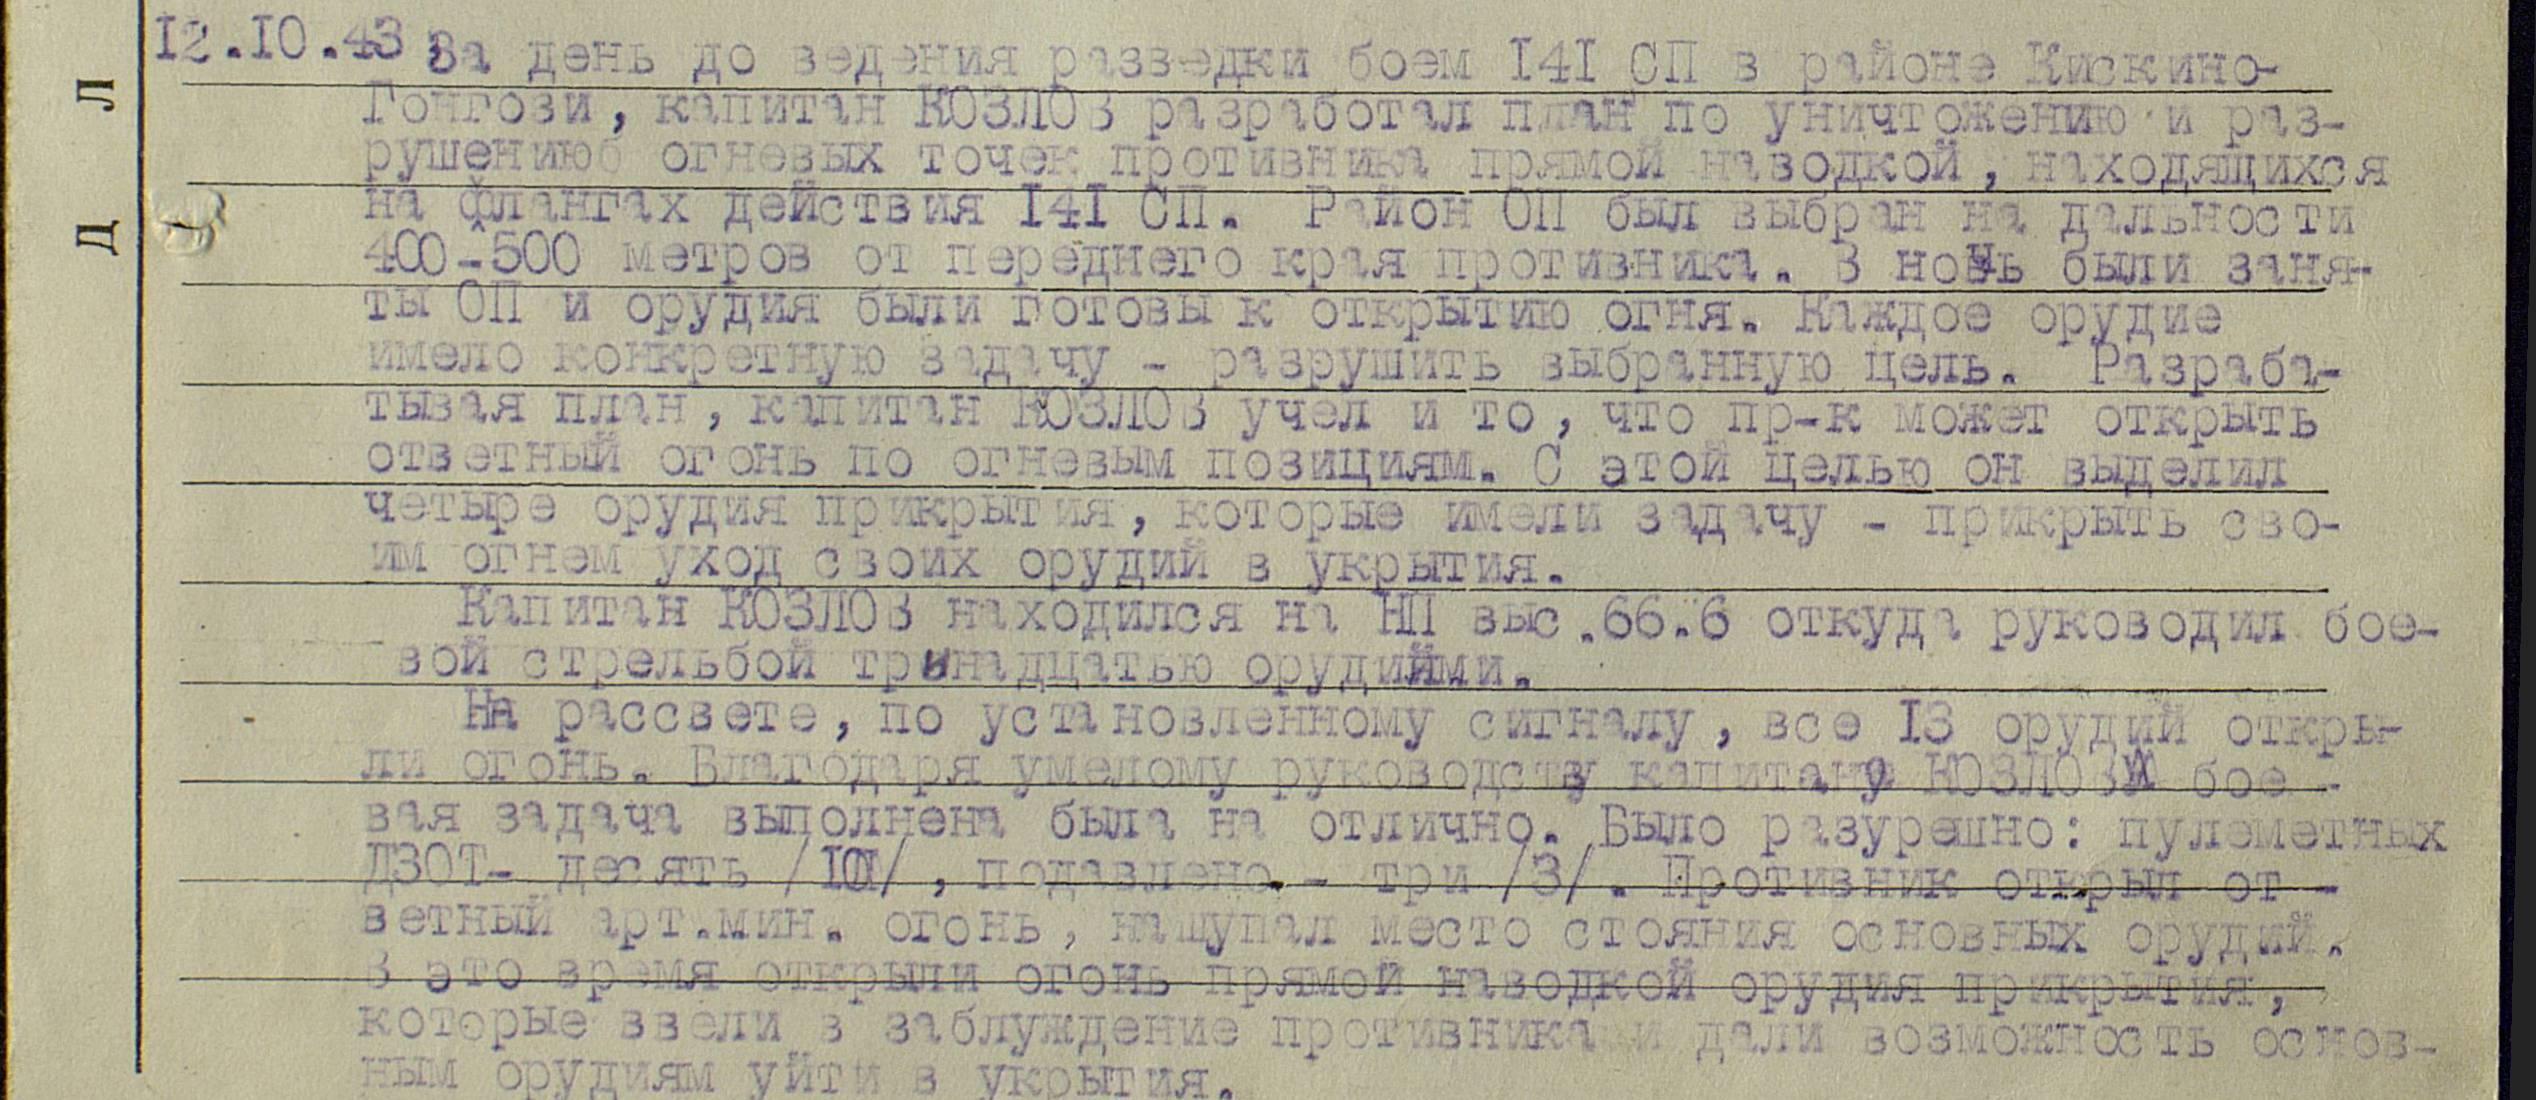 Л
Д
12.10.43 За день до ведения разведки боем 141 СП в районе Кискино-
Гонгози, капитан КОЗЛОВ разработал план по уничтожению и раз-
рушению огневых точек противника прямой наводкой, находящихся
на флангах действия 141 СП. Район ОП был выбран на дальности
400-500 метров от переднего края противника. В ночь были заня-
ты ОП и орудия были готовы к открытию огня. Каждое орудие
имело конкретную задачу - разрушить выбранную цель. Разраба-
тывая план, капитан КОЗЛОВ учел и то, что пр-к может открыть
ответный огонь по огневым позициям. С этой целью он выделил
четыре орудия прикрытия, которые имели задачу - прикрыть сво-
им огнем уход своих орудий в укрытия.
Капитан КОЗЛОВ находился на НП выс.66.6 откуда руководил бое-
вой стрельбой тринадцатью орудиями.
На рассвете, по установленному сигналу, все 13 орудий откры-
ли огонь. Благодаря умелому руководству капитана КОЗЛОВА бое -
вая задача выполнена была на отлично. Было разурешно: пулеметных
ДЗОТ- десять /10/, подавлено.- три /3/. Противник открыл от -
ветный арт.мин. огонь, нащупал место стояния основных орудий.
В это время открыли огонь прямой наводкой орудия прикрытия,
которые ввели в заблуждение противника и дали возможность основ-
ным орудиям уйти в укрытия.